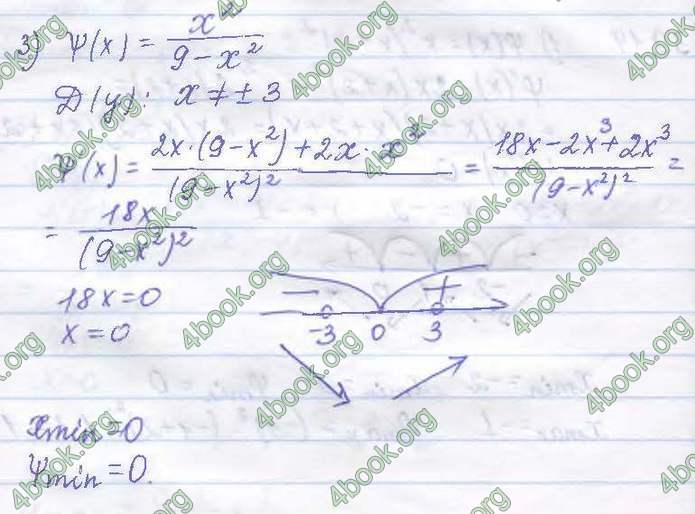 3) ψ(x) = x² / (9 − x²)
D(y): x ≠ ± 3
ψ'(x) = (2x·(9 − x²) + 2x · x²) / (9 − x²)² = (18x − 2x³ + 2x³) / (9 − x²)² =
= 18x / (9 − x²)²
18x = 0
x = 0
− +
-3 0 3
xmin = 0
ψmin = 0.
4book.org